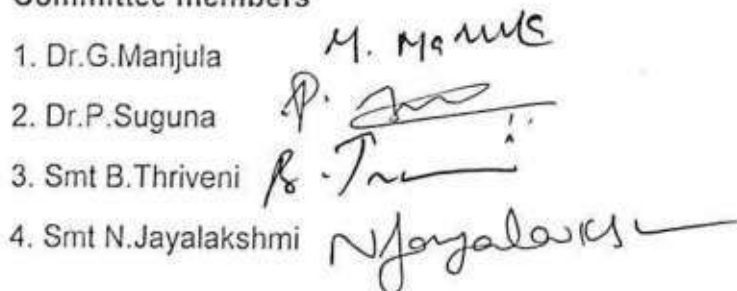 Committee members
1. Dr.G.Manjula M. Manjula
2. Dr.P.Suguna P.
3. Smt B.Thriveni B. T
4. Smt N.Jayalakshmi NJayalaksh